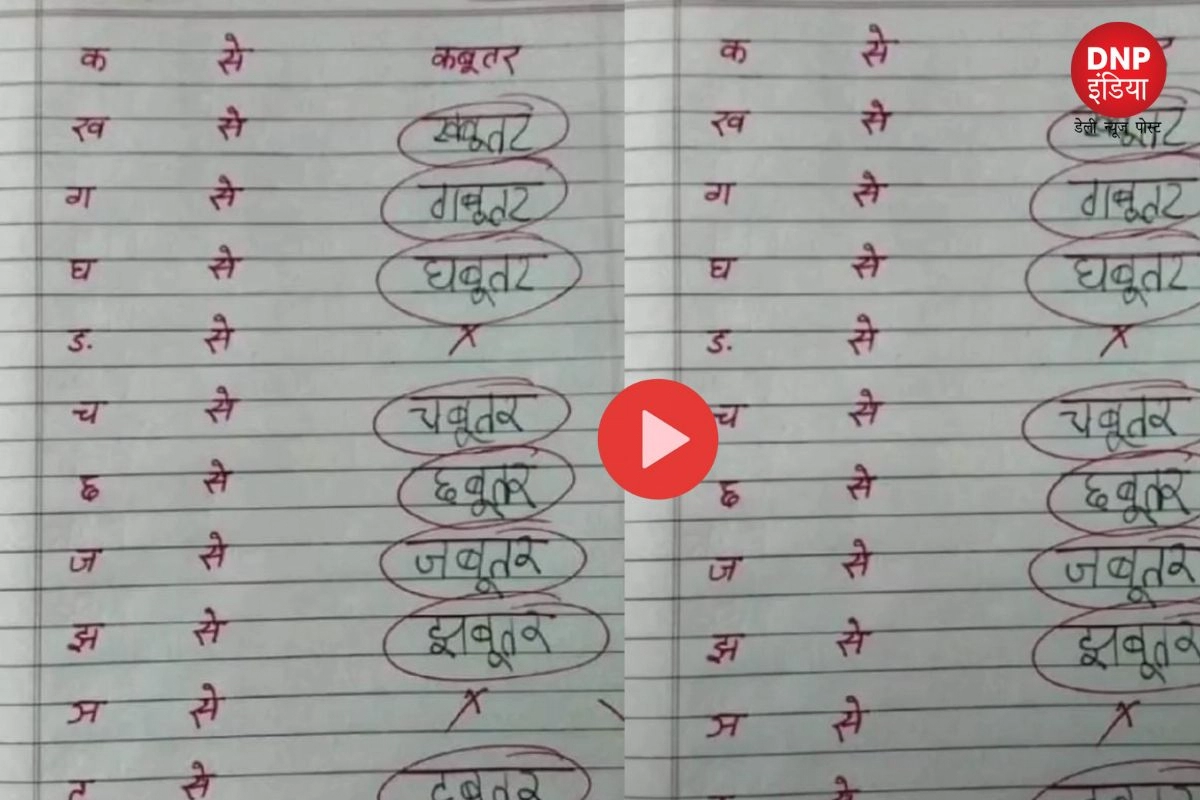 क से कबूतर क से
DNP
इंडिया
डेली न्यूज पोस्ट
ख से खबूतर ख से
ग से गबूतर ग से गबूतर
घ से घबूतर घ से घबूतर
ङ से x ङ से x
च से चबूतर च से चबूतर
छ से छबूतर छ से छबूतर
ज से जबूतर ज से जबूतर
झ से झबूतर झ से झबूतर
ञ से x ञ से x
ट से टबूतर